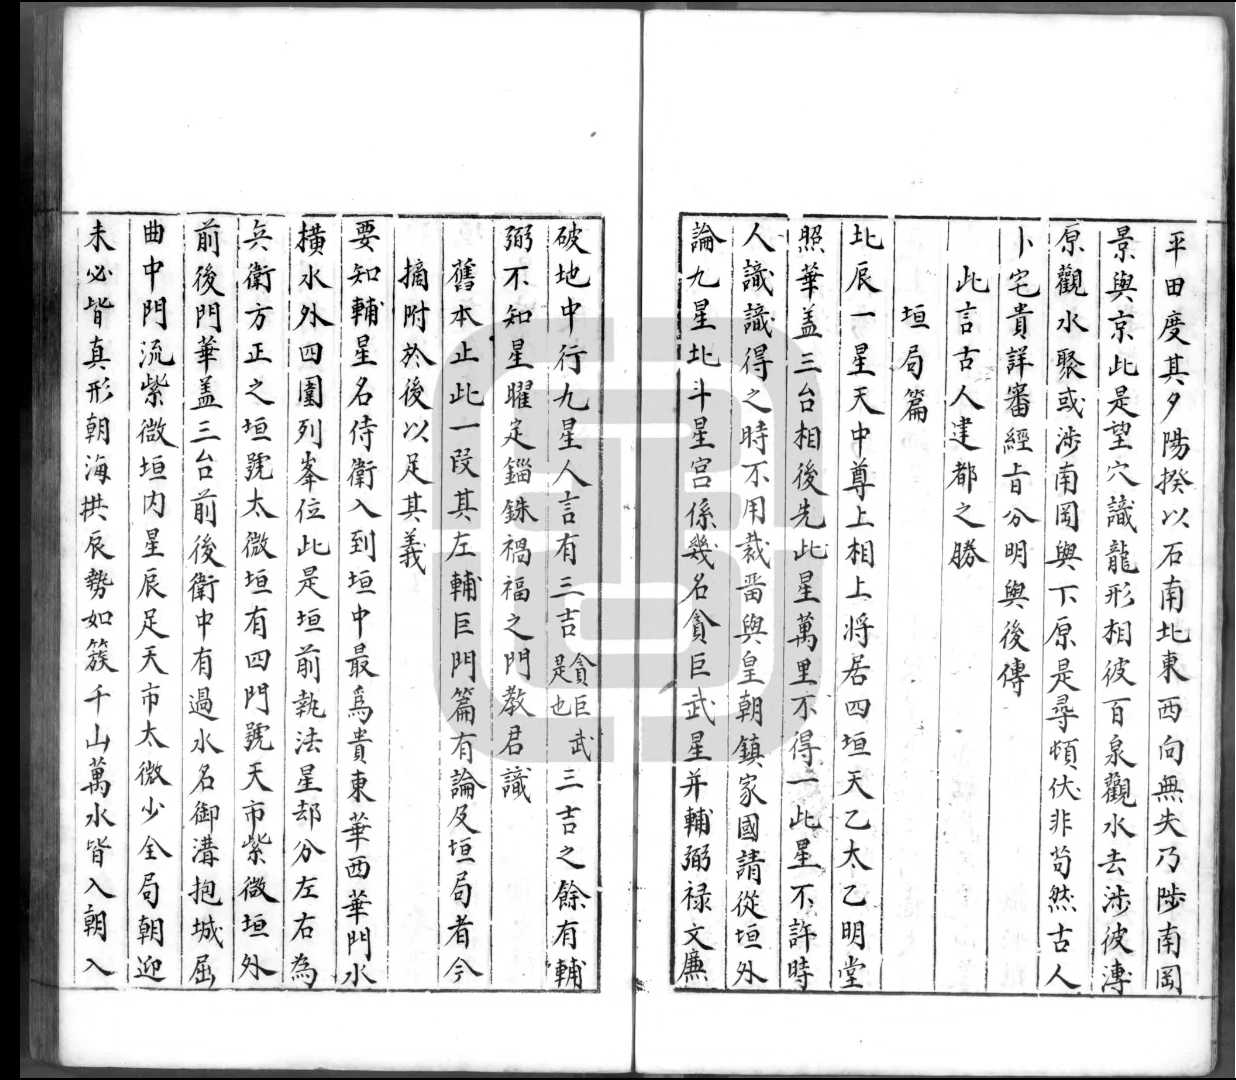 平田度其夕陽揆以石南北東西向無失乃陟南岡
景與京此是望穴識龍形相彼百泉觀水去涉彼溥
原觀水聚或涉南岡與下原是尋頓伏非苟然古人
卜宅貴詳審經旨分明與後傳
此言古人建都之勝
垣局篇
北辰一星天中尊上相上將居四垣天乙太乙明堂
照華盖三台相後先此星萬里不得一此星不許時
人識識得之時不用裁畱與皇朝鎮家國請從垣外
論九星北斗星宫係幾名貪巨武星并輔弼禄文廉
破地中行九星人言有三吉貪巨武是也三吉之餘有輔
弼不知星曜定錙銖禍福之門教君識
舊本止此一段其左輔巨門篇有論及垣局者今
摘附於後以足其義
要知輔星名侍衛入到垣中最爲貴東華西華門水
横水外四圍列峯位此是垣前執法星却分左右為
兵衛方正之垣號太微垣有四門號天市紫微垣外
前後門華盖三台前後衛中有過水名御溝抱城屈
曲中門流紫微垣内星辰足天市太微少全局朝迎
未必皆真形朝海拱辰勢如簇千山萬水皆入朝入